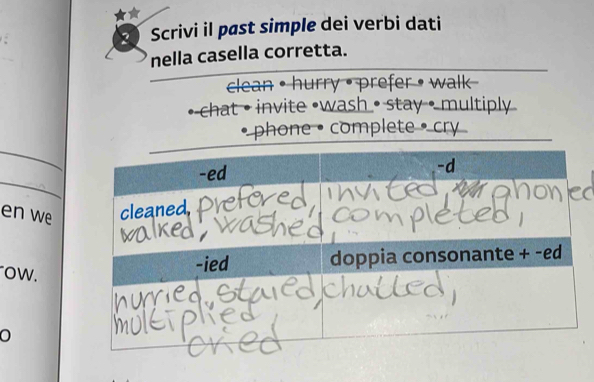 2 Scrivi il past simple dei verbi dati
nella casella corretta.
clean • hurry • prefer • walk
• chat • invite • wash • stay • multiply
• phone • complete • cry
-ed
cleaned, prefered,
walked, washed,
-d
invited, phoned
completed,
-ied
hurried, staied,
multiplied,
cried
doppia consonante + -ed
chatted,
en we
row.
o